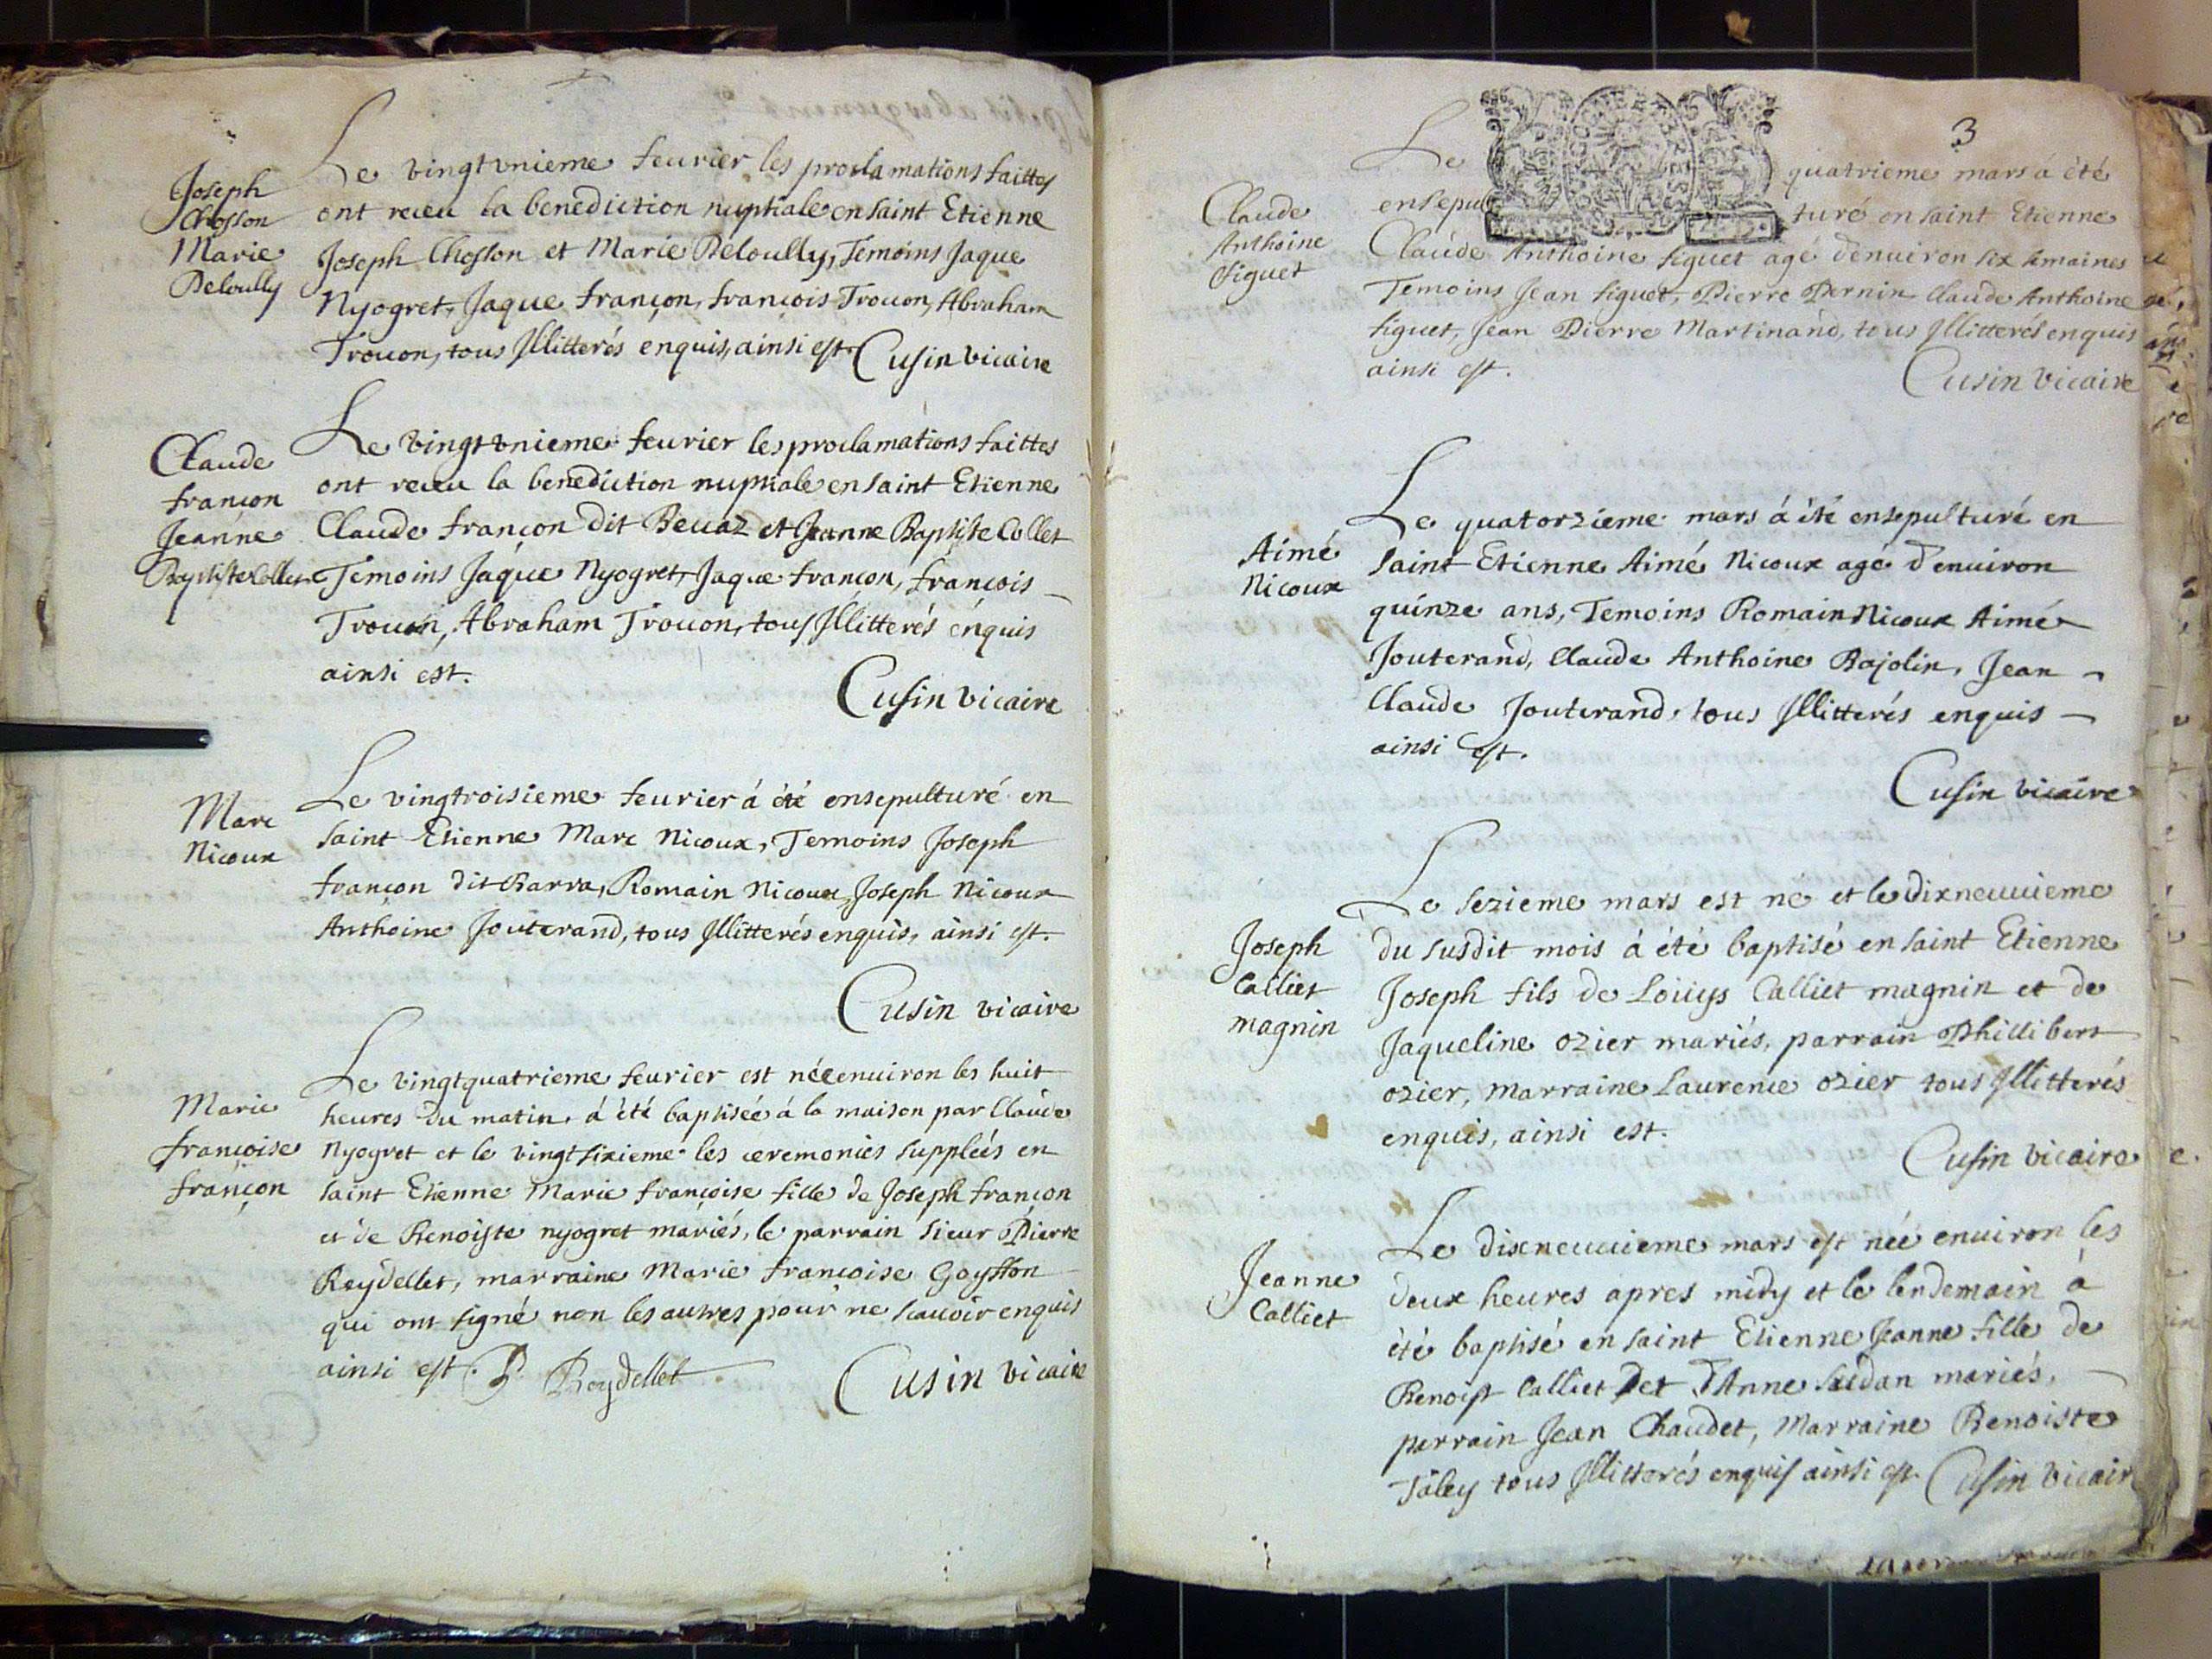 Joseph
Chosson
Marie
Deloully
Le vingtunieme feurier les proclamations faittes
ont receu la benediction nuptiale en saint Etienne
Joseph Chosson et Marie Deloully, Temoins Jaque
Nyogret, Jaque françon, françois Trouon, Abraham
Trouon, tous Jllitterés enquis, ainsi est. Cusin vicaire
Claude
françon
Jeanne
Baptiste Collet
Le vingtunieme feurier les proclamations faittes
ont receu la benediction nuptiale en saint Etienne
Claude françon dit Beuaz et Jeanne Baptiste Collet
Temoins Jaque Nyogret, Jaque françon, françois
Trouon, Abraham Trouon, tous Jllitterés enquis
ainsi est.
Cusin vicaire
Marc
Nicoux
Le vingtroisieme feurier á été ensepulturé en
saint Etienne Marc Nicoux, Temoins Joseph
françon dit Barra, Romain Nicoux, Joseph Nicoux
Anthoine Jouterand, tous Jllitterés enquis, ainsi est.
Cusin vicaire
Marie
françoise
françon
Le vingtquatrieme feurier est née enuiron les huit
heures du matin, á été baptiseé á la maison par Claude
nyogret et le vingtsixieme les ceremonies suppleés en
saint Etienne Marie françoise fille de Joseph françon
et de Benoiste nyogret mariés, le parrain sieur Pierre
Reydellet, marraine Marie françoise Goyffon
qui ont signé non les autres pour ne scauoir enquis
ainsi est. P. Reydellet. Cusin vicaire
3
Claude
Anthoine
figuet
Le quatrieme mars á été
ensepulturé en saint Etienne
Claude Anthoine figuet agé d'enuiron six semaines
Temoins Jean figuet, Pierre Pernin Claude Anthoine
figuet, Jean Pierre Martinand, tous Jllitterés enquis
ainsi est.
Cusin vicaire
Aimé
Nicoux
Le quatorzieme mars á été ensepulturé en
saint Etienne Aimé Nicoux agé d'enuiron
quinze ans, Temoins Romain Nicoux Aimé
Jouterand, Claude Anthoine Bajolin, Jean
Claude Jouterand, tous Jllitterés enquis
ainsi est.
Cusin vicaire
Joseph
Calliet
magnin
Le sezieme mars est né et le dixneuuieme
du susdit mois á été baptisé en saint Etienne
Joseph fils de Loüys Calliet magnin et de
Jaqueline ozier mariés, parrain Phillibert
ozier, marraine Laurence ozier tous Jllitterés
enquis, ainsi est.
Cusin vicaire
Jeanne
Calliet
Le dixneuuieme mars est née enuiron les
deux heures apres midy et le lendemain á
été baptisé en saint Etienne Jeanne fille de
Benoist Calliet et d'Anne saidan mariés,
parrain Jean Chaudet, Marraine Benoiste
Taley tous Jllitterés enquis ainsi est. Cusin vicaire